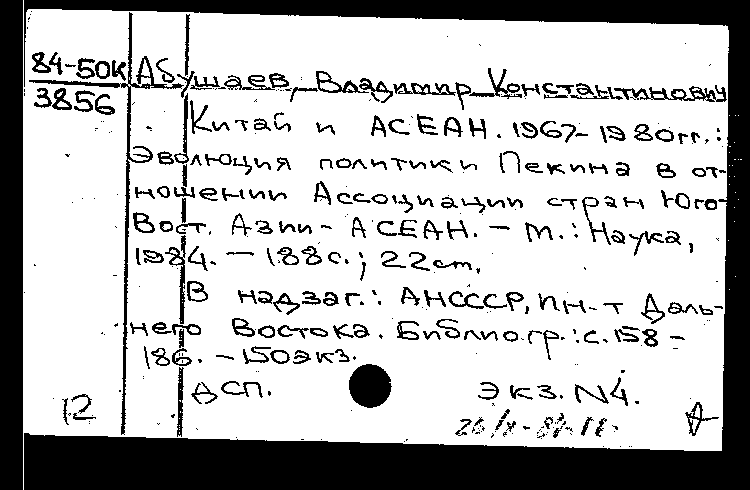 84-50К
3856
Абушаев, Владимир Константинович
Китай и АСЕАН. 1967-1980гг.:
Эволюция политики Пекина в от-
ношении Ассоциации стран Юго-
Вост. Азии - АСЕАН. - М.: Наука,
1984. - 188с.; 22см.
В надзаг.: АНСССР, ИН-т Даль-
него Востока. Библиогр.: с. 158 -
186. - 150экз.
ДСП.
экз. N4.
12